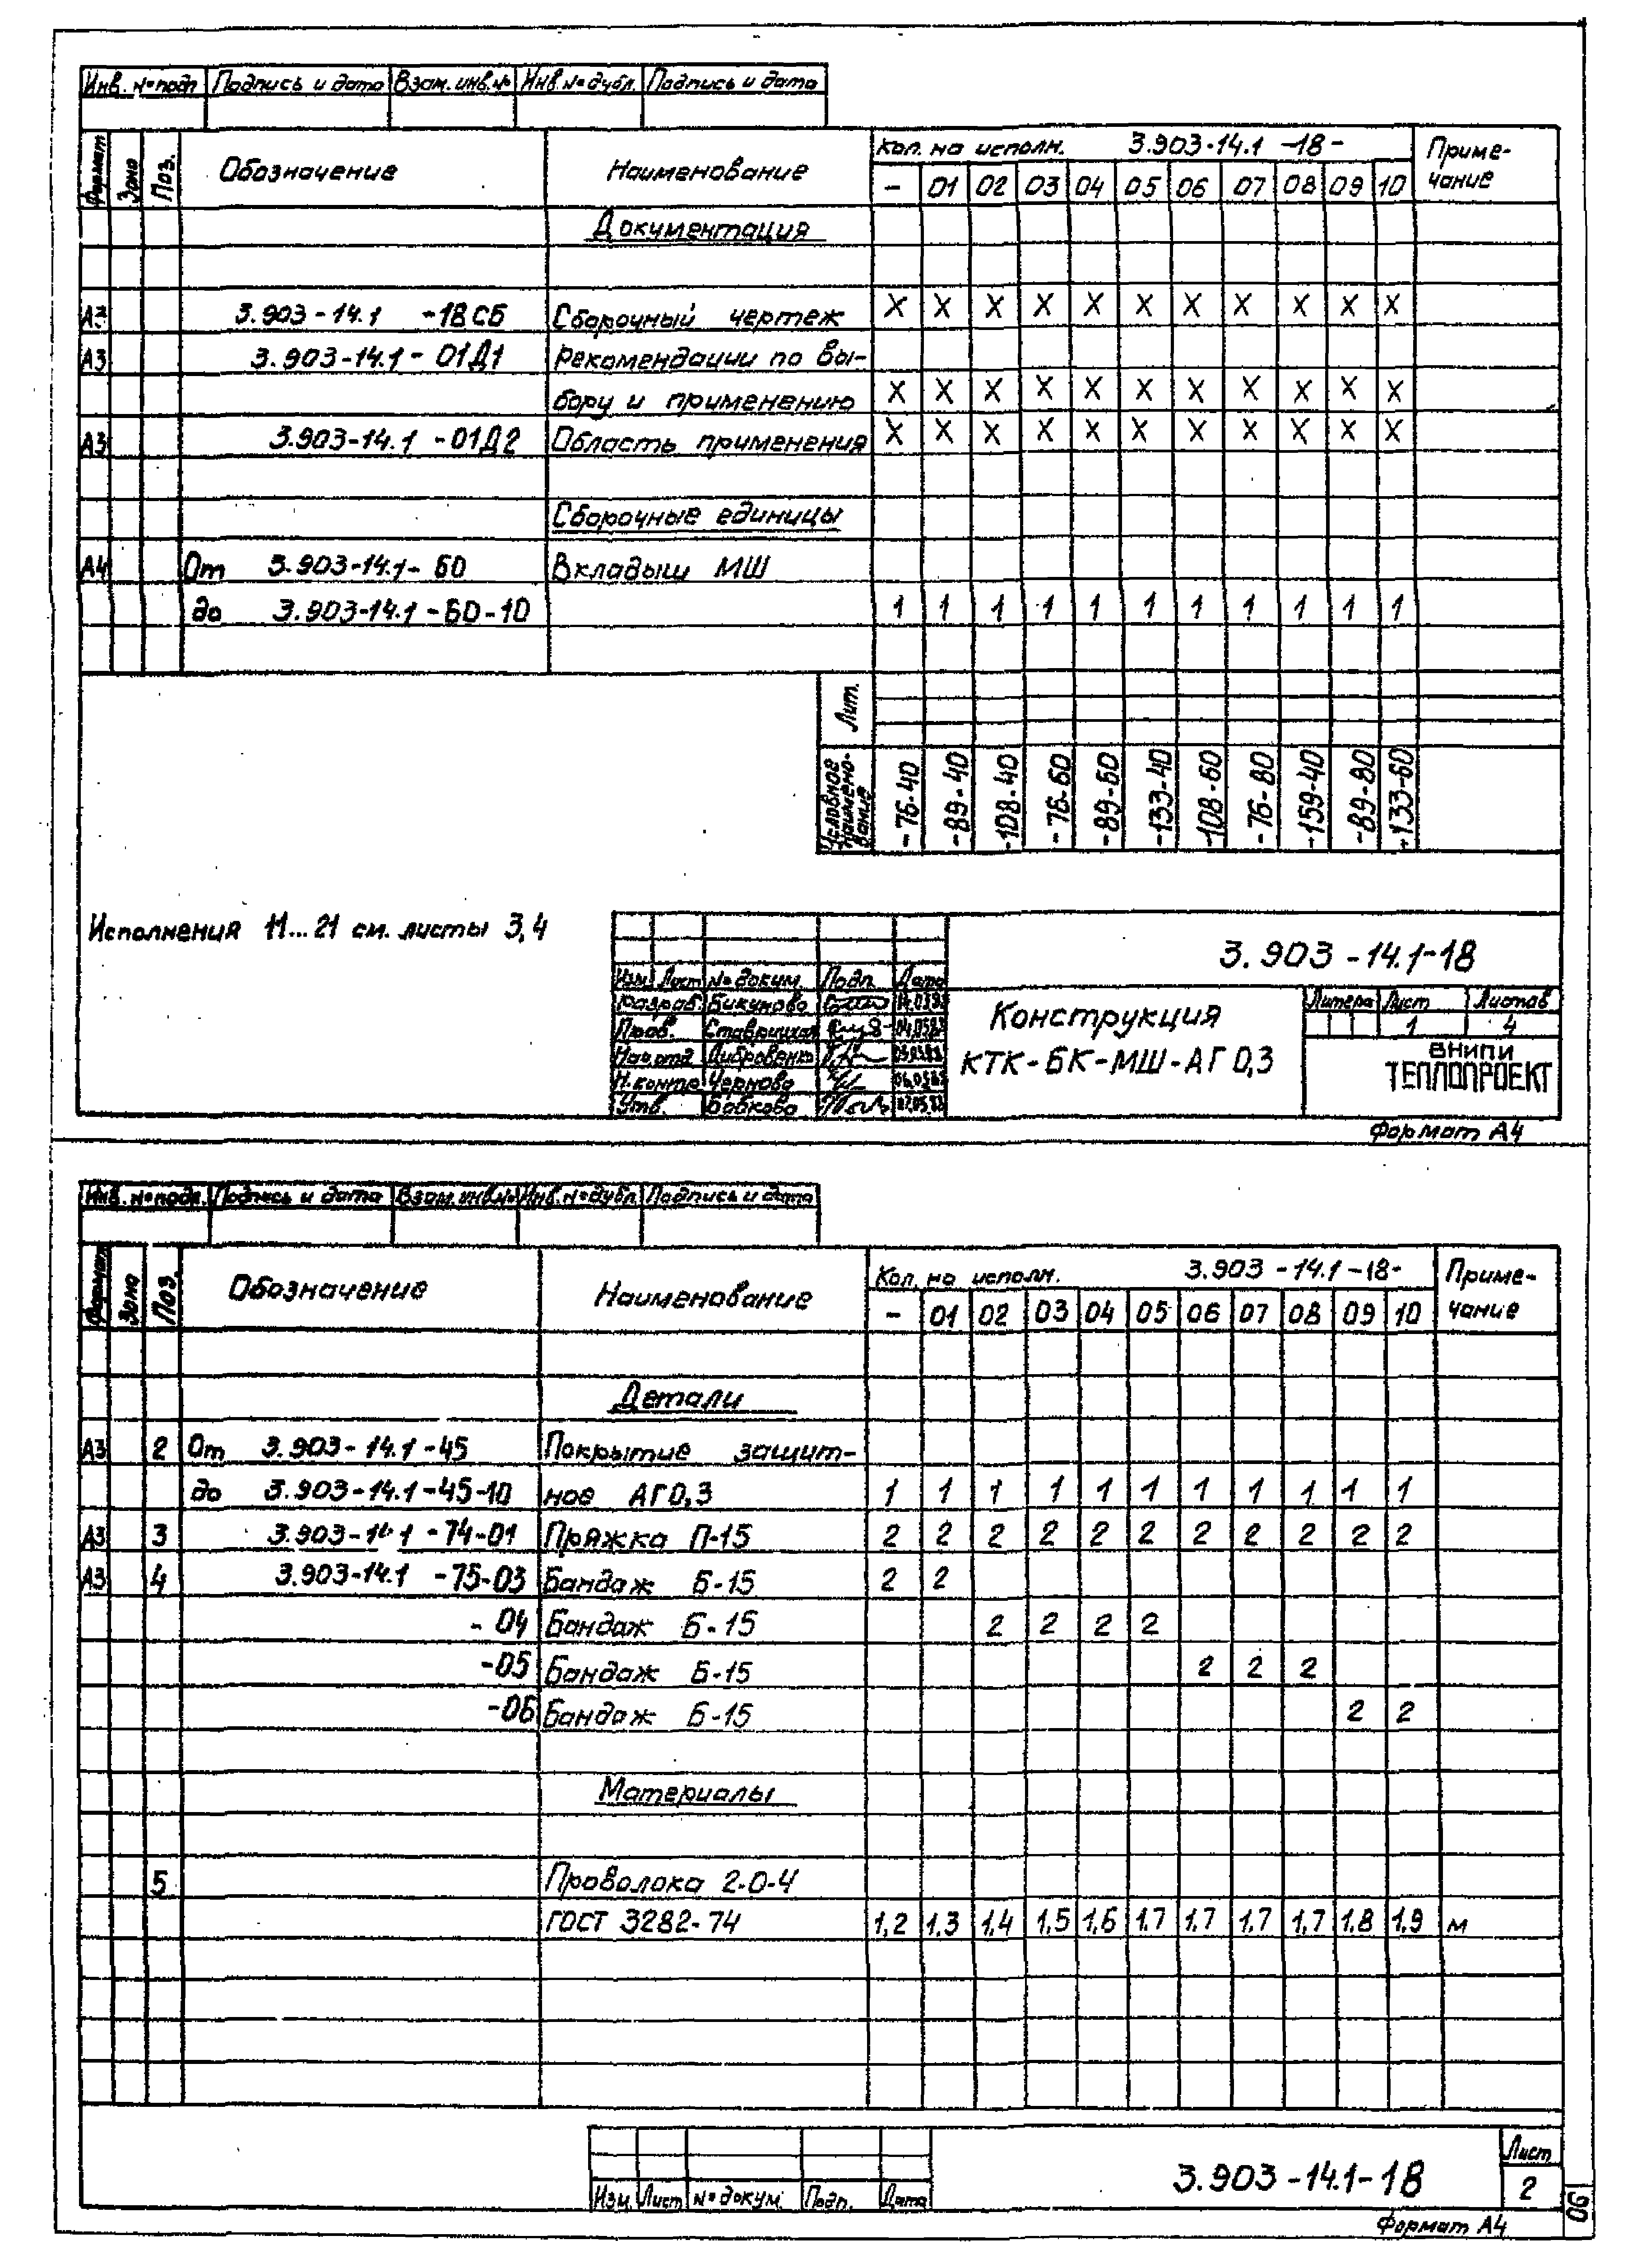 Инв. № подл. Подпись и дата Взам. инв. № Инв. № дубл. Подпись и дата
Формат Зона Поз. Обозначение Наименование Кол. на исполн. 3.903-14.1 -18- Приме-
чание
- 01 02 03 04 05 06 07 08 09 10
Документация
А3 3.903-14.1 -18СБ Сборочный чертеж X X X X X X X X X X X
А3 3.903-14.1-01Д1 Рекомендации по вы-
бору и применению X X X X X X X X X X X
А3 3.903-14.1 -01Д2 Область применения X X X X X X X X X X X
Сборочные единицы
А4 От 3.903-14.1-60 Вкладыш МШ
до 3.903-14.1-60-10 1 1 1 1 1 1 1 1 1 1 1
Лит.
Условное наимено-вание -76-40 -89-40 -108-40 -76-60 -89-60 -133-40 -108-60 -76-80 -159-40 -89-80 -133-60
Исполнения 11...21 см. листы 3,4
3.903-14.1-18
Изм Лист № докум. Подп. Дата
Разраб. Бикунова
Пров.
Нач.отд.
Н.контр Чернова
Утв. Бобкова
Конструкция
КТК-БК-МШ-АГ0,3
Литера Лист Листов
1 4
ВНИПИ
ТЕПЛОПРОЕКТ
Формат А4
Инв. № подл. Подпись и дата Взам. инв. № Инв. № дубл. Подпись и дата
Формат Зона Поз. Обозначение Наименование Кол. на исполн. 3.903-14.1-18- Приме-
чание
- 01 02 03 04 05 06 07 08 09 10
Детали
А3 2 От 3.903-14.1-45 Покрытие защит-
до 3.903-14.1-45-10 ное АГ0,3 1 1 1 1 1 1 1 1 1 1 1
А3 3 3.903-14.1-74-01 Пряжка П-15 2 2 2 2 2 2 2 2 2 2 2
А3 4 3.903-14.1 -75-03 Бандаж Б-15 2 2
-04 Бандаж Б-15 2 2 2 2
-05 Бандаж Б-15 2 2 2
-06 Бандаж Б-15 2 2
Материалы
5 Проволока 2-0-4
ГОСТ 3282-74 1,2 1,3 1,4 1,5 1,6 1,7 1,7 1,7 1,7 1,8 1,9 м
Изм. Лист № докум. Подп. Дата
3.903-14.1-18
Лист
2
Формат А4
90